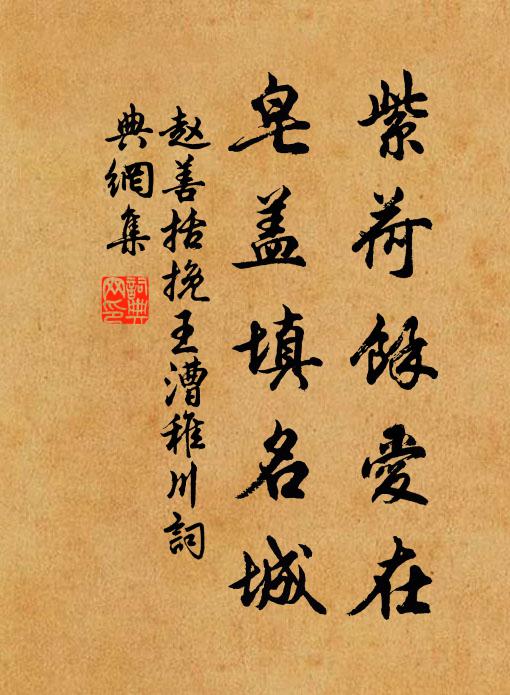 紫荷餘愛在
皂盖填名城
赵善括挽王漕稚川詞
典網集
詞典网印